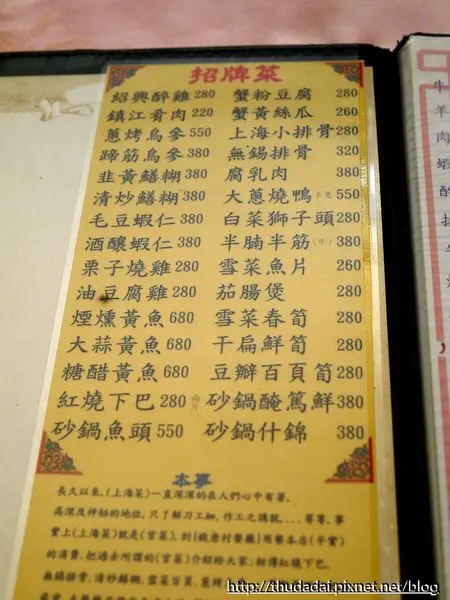 招牌菜
紹興醉雞280 蟹粉豆腐280
鎮江肴肉220 蟹黃絲瓜260
蔥烤烏參550 上海小排骨280
蹄筋烏參380 無錫排骨320
韭黃鱔糊380 腐乳肉380
清炒鱔糊380 大蔥燒鴨半隻550
毛豆蝦仁380 白菜獅子頭280
酒釀蝦仁380 半腩半筋(牛)380
栗子燒雞280 雪菜魚片260
油豆腐雞280 茄腸煲280
煙燻黃魚680 雪菜春筍280
大蒜黃魚680 干扁鮮筍280
糖醋黃魚680 豆瓣百頁筍280
紅燒下巴280 砂鍋醃篤鮮380
砂鍋魚頭550 砂鍋什錦380
本事
長久以來,(上海菜)一直深深的在人們心中有著,
高深及神秘的地位,只了解刀工細,作工之講就....等等,事
實上(上海菜)就是(官菜),到(錢唐村餐廳)用餐本店(平實)
的消費,把過去所謂的(官菜)介紹給大家:相傳紅燒下巴,
無錫排骨,清炒鱔糊,雪菜百頁,蔥烤
牛
羊
肉
蝦
醉
http://thudadai.pixnet.net/blog